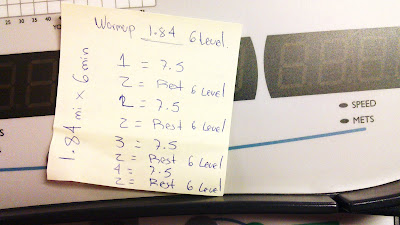 Warmup 1.84 6 Level.
1 = 7.5
2 = Rest 6 Level
2 = 7.5
2 = Rest 6 Level
3 = 7.5
2 = Rest 6 Level
4 = 7.5
2 = Rest 6 Level
1.84 mi x 6 min
SPEED
METS